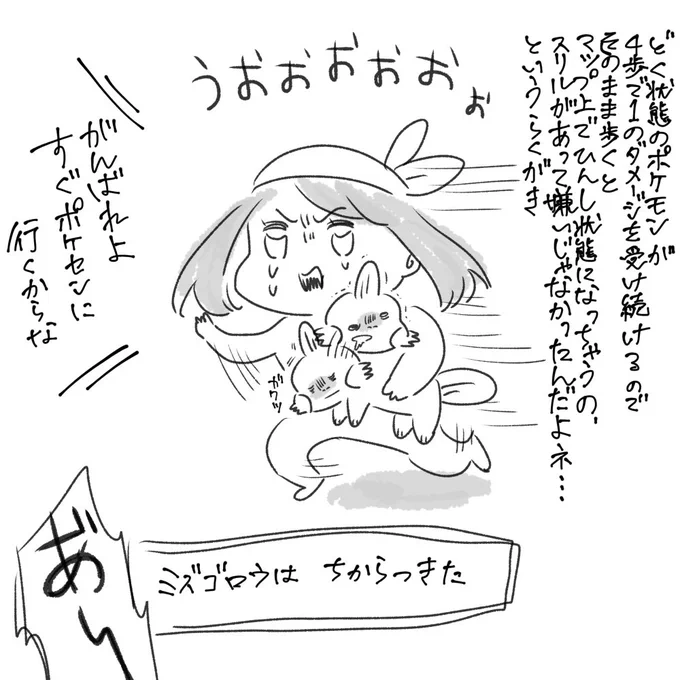 どく状態のポケモンが
4歩で1のダメージを受け続けるので
そのまま歩くと
マップ上でひんし状態になっちゃうの、
スリルがあって嫌いじゃなかったんだよネ…
というらくがき
うおおおおおぉ
がんばれよ
すぐポケセンに
行くからな
ガクッ
ミズゴロウは ちからつきた
あ゛ーっ